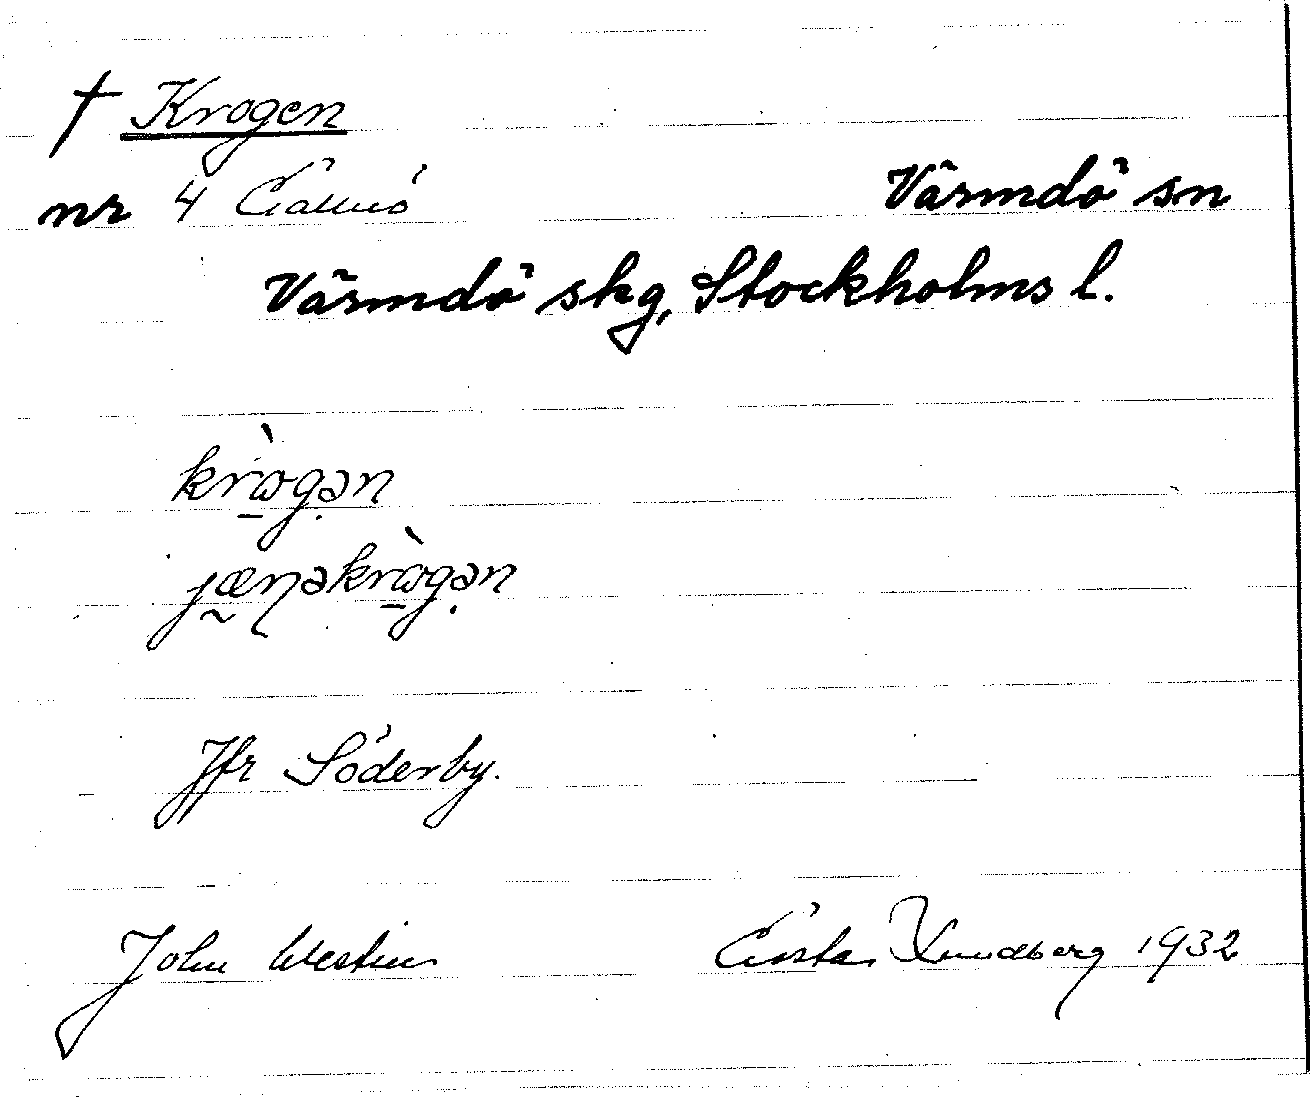 † Krogen
nr 4 Gällnö Värmdö sn
Värmdö skg, Stockholms l.
kr̀ωgən
jæɳəkr̀ωgən
Jfr Söderby.
John Westin Gösta Lundberg 1932